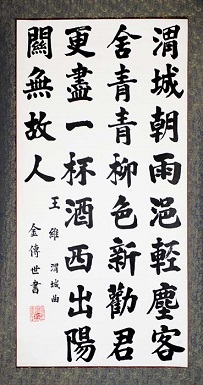 渭城朝雨浥輕塵客
舍青青柳色新勸君
更盡一杯酒西出陽
關無故人
王維 渭城曲
金傳世書